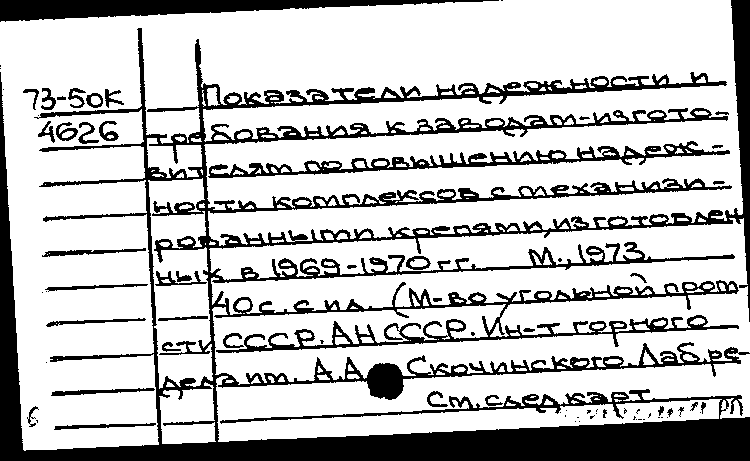 73-50К Показатели надежности и
4626 требования к заводам-изгото-
вителям по повышению надеж-
ности комплексов с механизи-
рованными крепями, изготовлен
ных в 1969-1970 гг. М., 1973.
40 с. с ил. (М-во угольной пром-
сти СССР. АН СССР. Ин-т горного
дела им. А.А. Скочинского. Лаб. ре-
См. след. карт.
6 РП